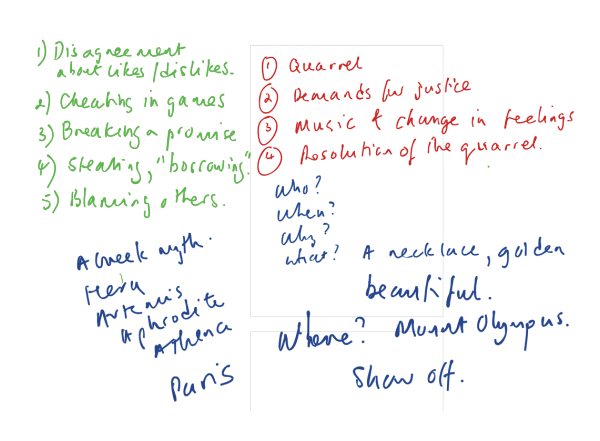 1) Disagreement
about likes/dislikes.
2) Cheating in games
3) Breaking a promise
4) Stealing, "borrowing".
5) Blaming others.
① Quarrel
② Demands for justice
③ Music & change in feelings
④ Resolution of the quarrel.
Who?
When?
Why?
What? A necklace, golden
beautiful.
Where? Mount Olympus.
Show off.
A Greek myth.
Hera
Artemis
Aphrodite
Athena
Paris